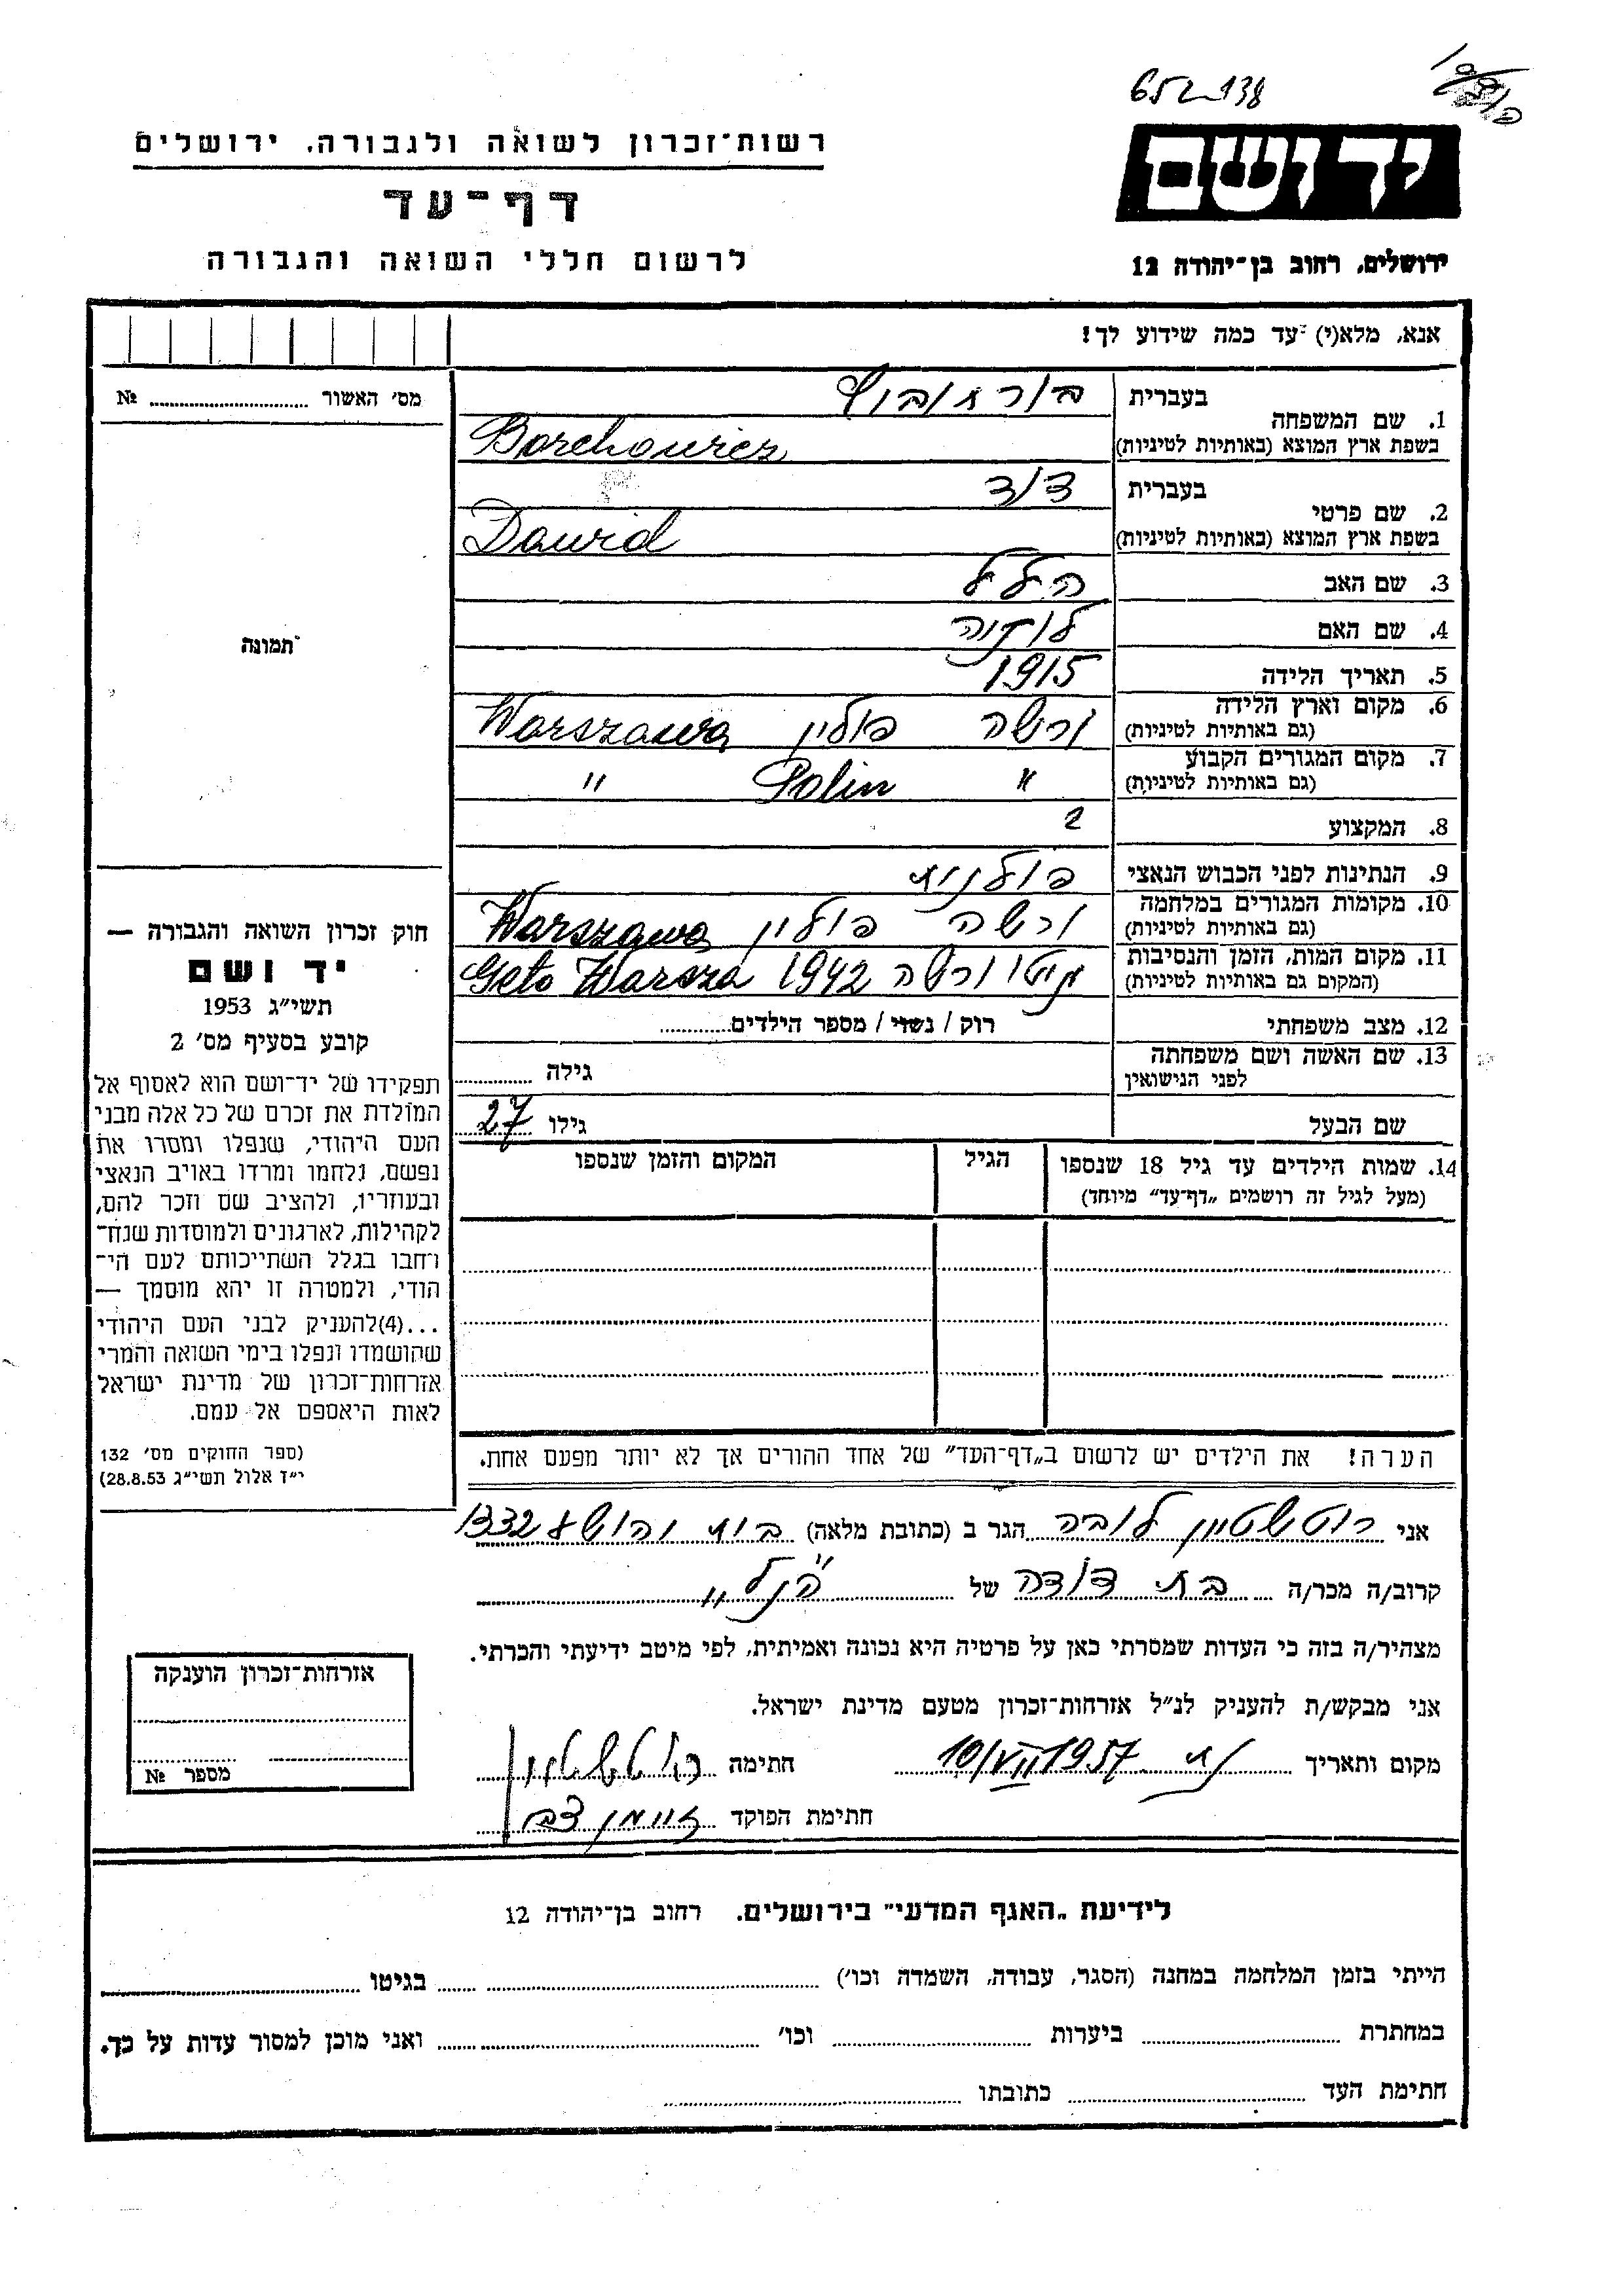 652-138
יד ושם
רשות־זכרון לשואה ולגבורה. ירושלים
דף־עד
לרשום חללי השואה והגבורה
ירושלים, רחוב בן־יהודה 12
אנא, מלא(י) עד כמה שידוע לך!
מס׳ האשור № 
תמונה
1. שם המשפחה
בעברית
בשפת ארץ המוצא (באותיות לטיניות) Borehowicz
2. שם פרטי
בעברית דוד
בשפת ארץ המוצא (באותיות לטיניות) Dawid
3. שם האב הלל
4. שם האם
5. תאריך הלידה 1915
6. מקום וארץ הלידה ורשה פולין Warszawa
(גם באותיות לטיניות)
7. מקום המגורים הקבוע " Polin "
(גם באותיות לטיניות)
8. המקצוע
9. הנתינות לפני הכבוש הנאצי פולנית
10. מקומות המגורים במלחמה ורשה פולין Warszawa
(גם באותיות לטיניות)
11. מקום המות, הזמן והנסיבות גיטו ורשה 1942 Geto Warsza
(המקום גם באותיות לטיניות)
12. מצב משפחתי רוק / נשוי / מספר הילדים
13. שם האשה ושם משפחתה
לפני הנישואין גילה
שם הבעל גילו 27
14. שמות הילדים עד גיל 18 שנספו הגיל המקום והזמן שנספו
(מעל לגיל זה רושמים „דף־עד״ מיוחד)
חוק זכרון השואה והגבורה —
יד ושם
תשי״ג 1953
קובע בסעיף מס׳ 2
תפקידו של יד־ושם הוא לאסוף אל
המולדת את זכרם של כל אלה מבני
העם היהודי, שנפלו ומסרו את
נפשם, נלחמו ומרדו באויב הנאצי
ובעוזריו, ולהציב שם וזכר להם,
לקהילות, לארגונים ולמוסדות שנח־
רחבו בגלל השתייכותם לעם הי־
הודי, ולמטרה זו יהא מוסמך —
...(4)להעניק לבני העם היהודי
שהושמדו ונפלו בימי השואה והמרי
אזרחות־זכרון של מדינת ישראל
לאות היאספם אל עמם.
(ספר החוקים מס׳ 132
י״ז אלול תשי״ג 28.8.53)
הערה! את הילדים יש לרשום ב„דף־העד״ של אחד ההורים אך לא יותר מפעם אחת.
אני רוטשטיין לובה הגר ב (כתובת מלאה)
קרוב/ה מכר/ה בת דודה של הנ״ל
מצהיר/ה בזה כי העדות שמסרתי כאן על פרטיה היא נכונה ואמיתית, לפי מיטב ידיעתי והכרתי.
אני מבקש/ת להעניק לנ״ל אזרחות־זכרון מטעם מדינת ישראל.
מקום ותאריך 10/VII 1957 חתימה רוטשטיין
חתימת הפוקד
אזרחות־זכרון הוענקה
מספר №
לידיעת „האגף המדעי״ בירושלים. רחוב בן־יהודה 12
הייתי בזמן המלחמה במחנה (הסגר, עבודה, השמדה וכו׳) בגיטו
במחתרת ביערות וכו׳ ואני מוכן למסור עדות על כך.
חתימת העד כתובתו